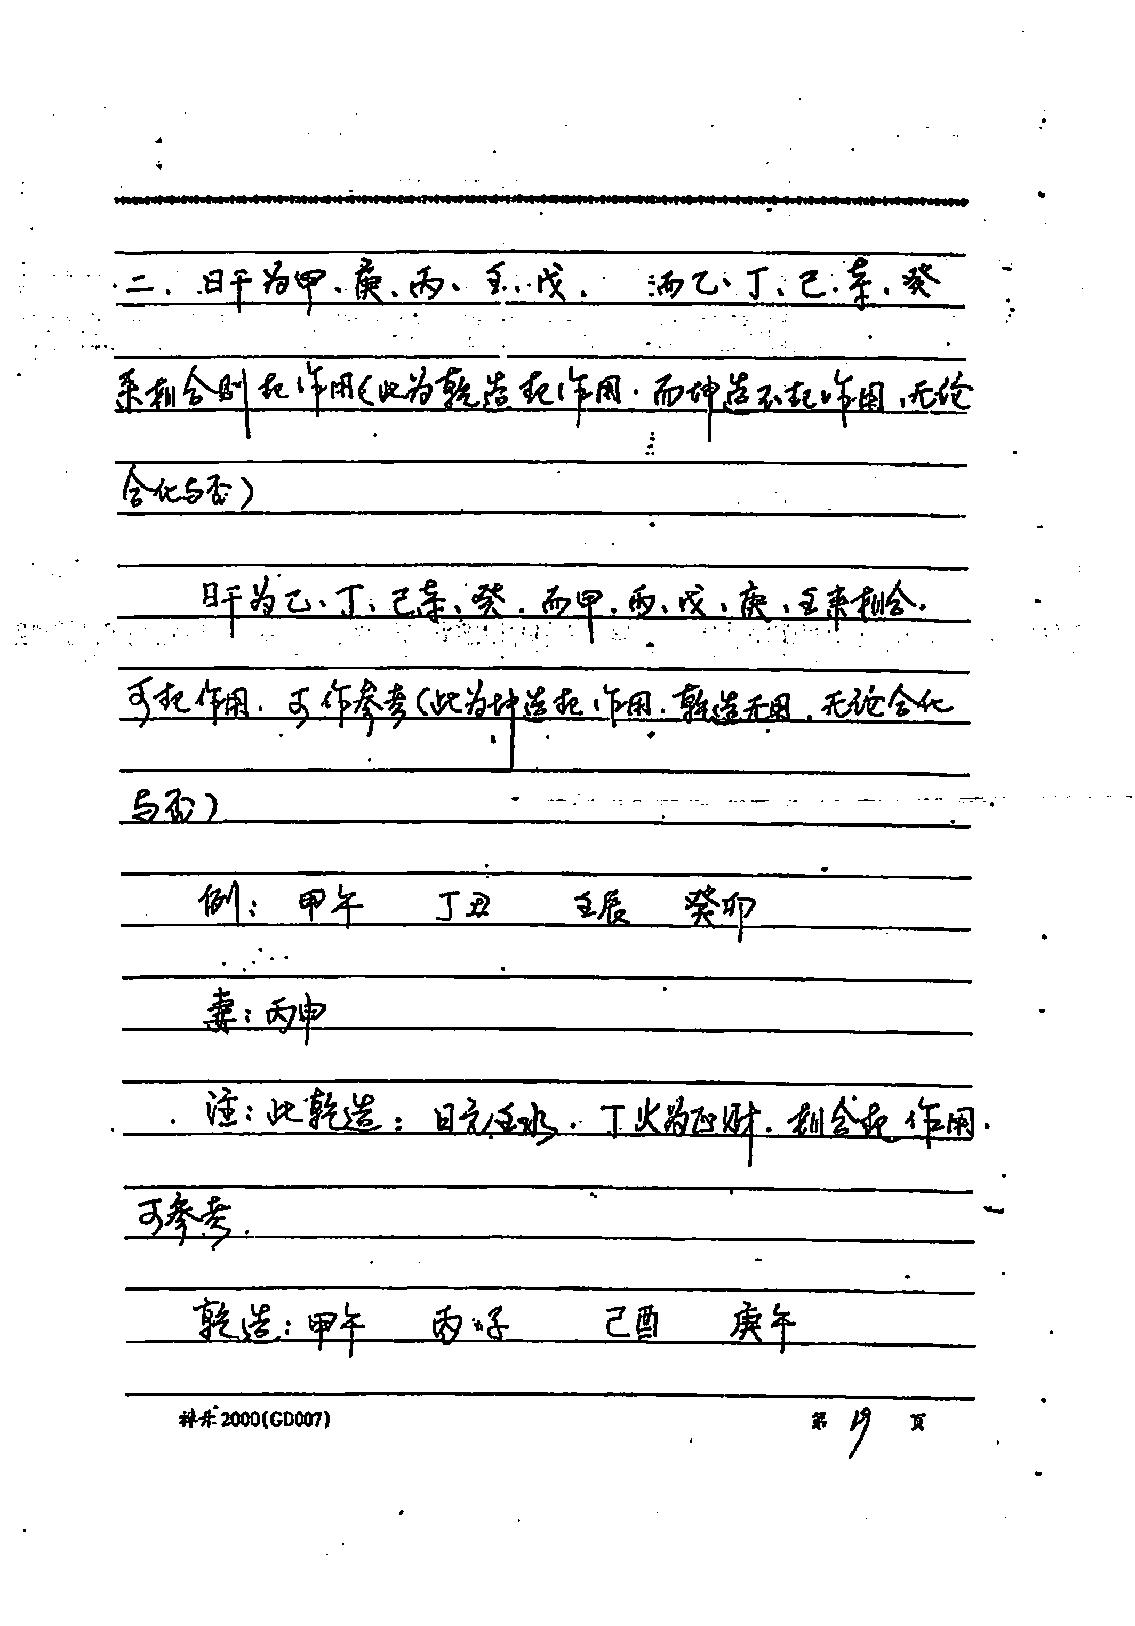 二、日干为甲、庚、丙、壬、戊、而乙、丁、己、辛、癸
来相合则起作用(此为乾造起作用.而坤造不起作用,无论
合化与否)
日干为乙、丁、己辛、癸.而甲、丙、戊、庚、壬来相合.
可起作用.可作参考(此为坤造起作用.乾造无用.无论合化
与否)
例: 甲午 丁丑 壬辰 癸卯
妻:丙申
注:此乾造:日元壬水.丁火为正财.相合起作用.
可参考.
乾造:甲午 丙子 己酉 庚午
科乐2000(GD007) 第19页